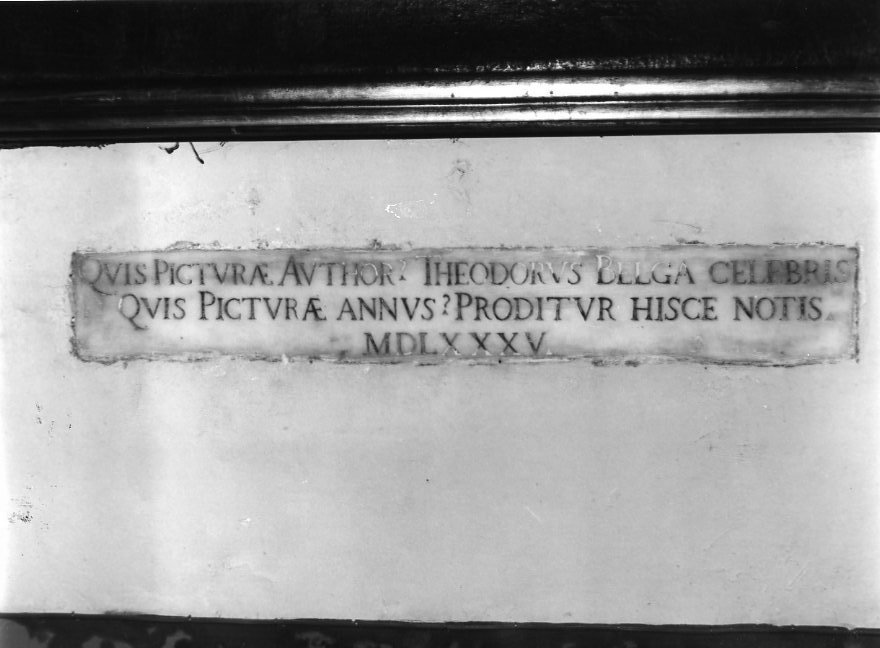 QVIS PICTVRÆ AVTHOR? THEODORVS BELGA CELEBRIS
QVIS PICTVRÆ ANNVS? PRODITVR HISCE NOTIS.
MDLXXXV.